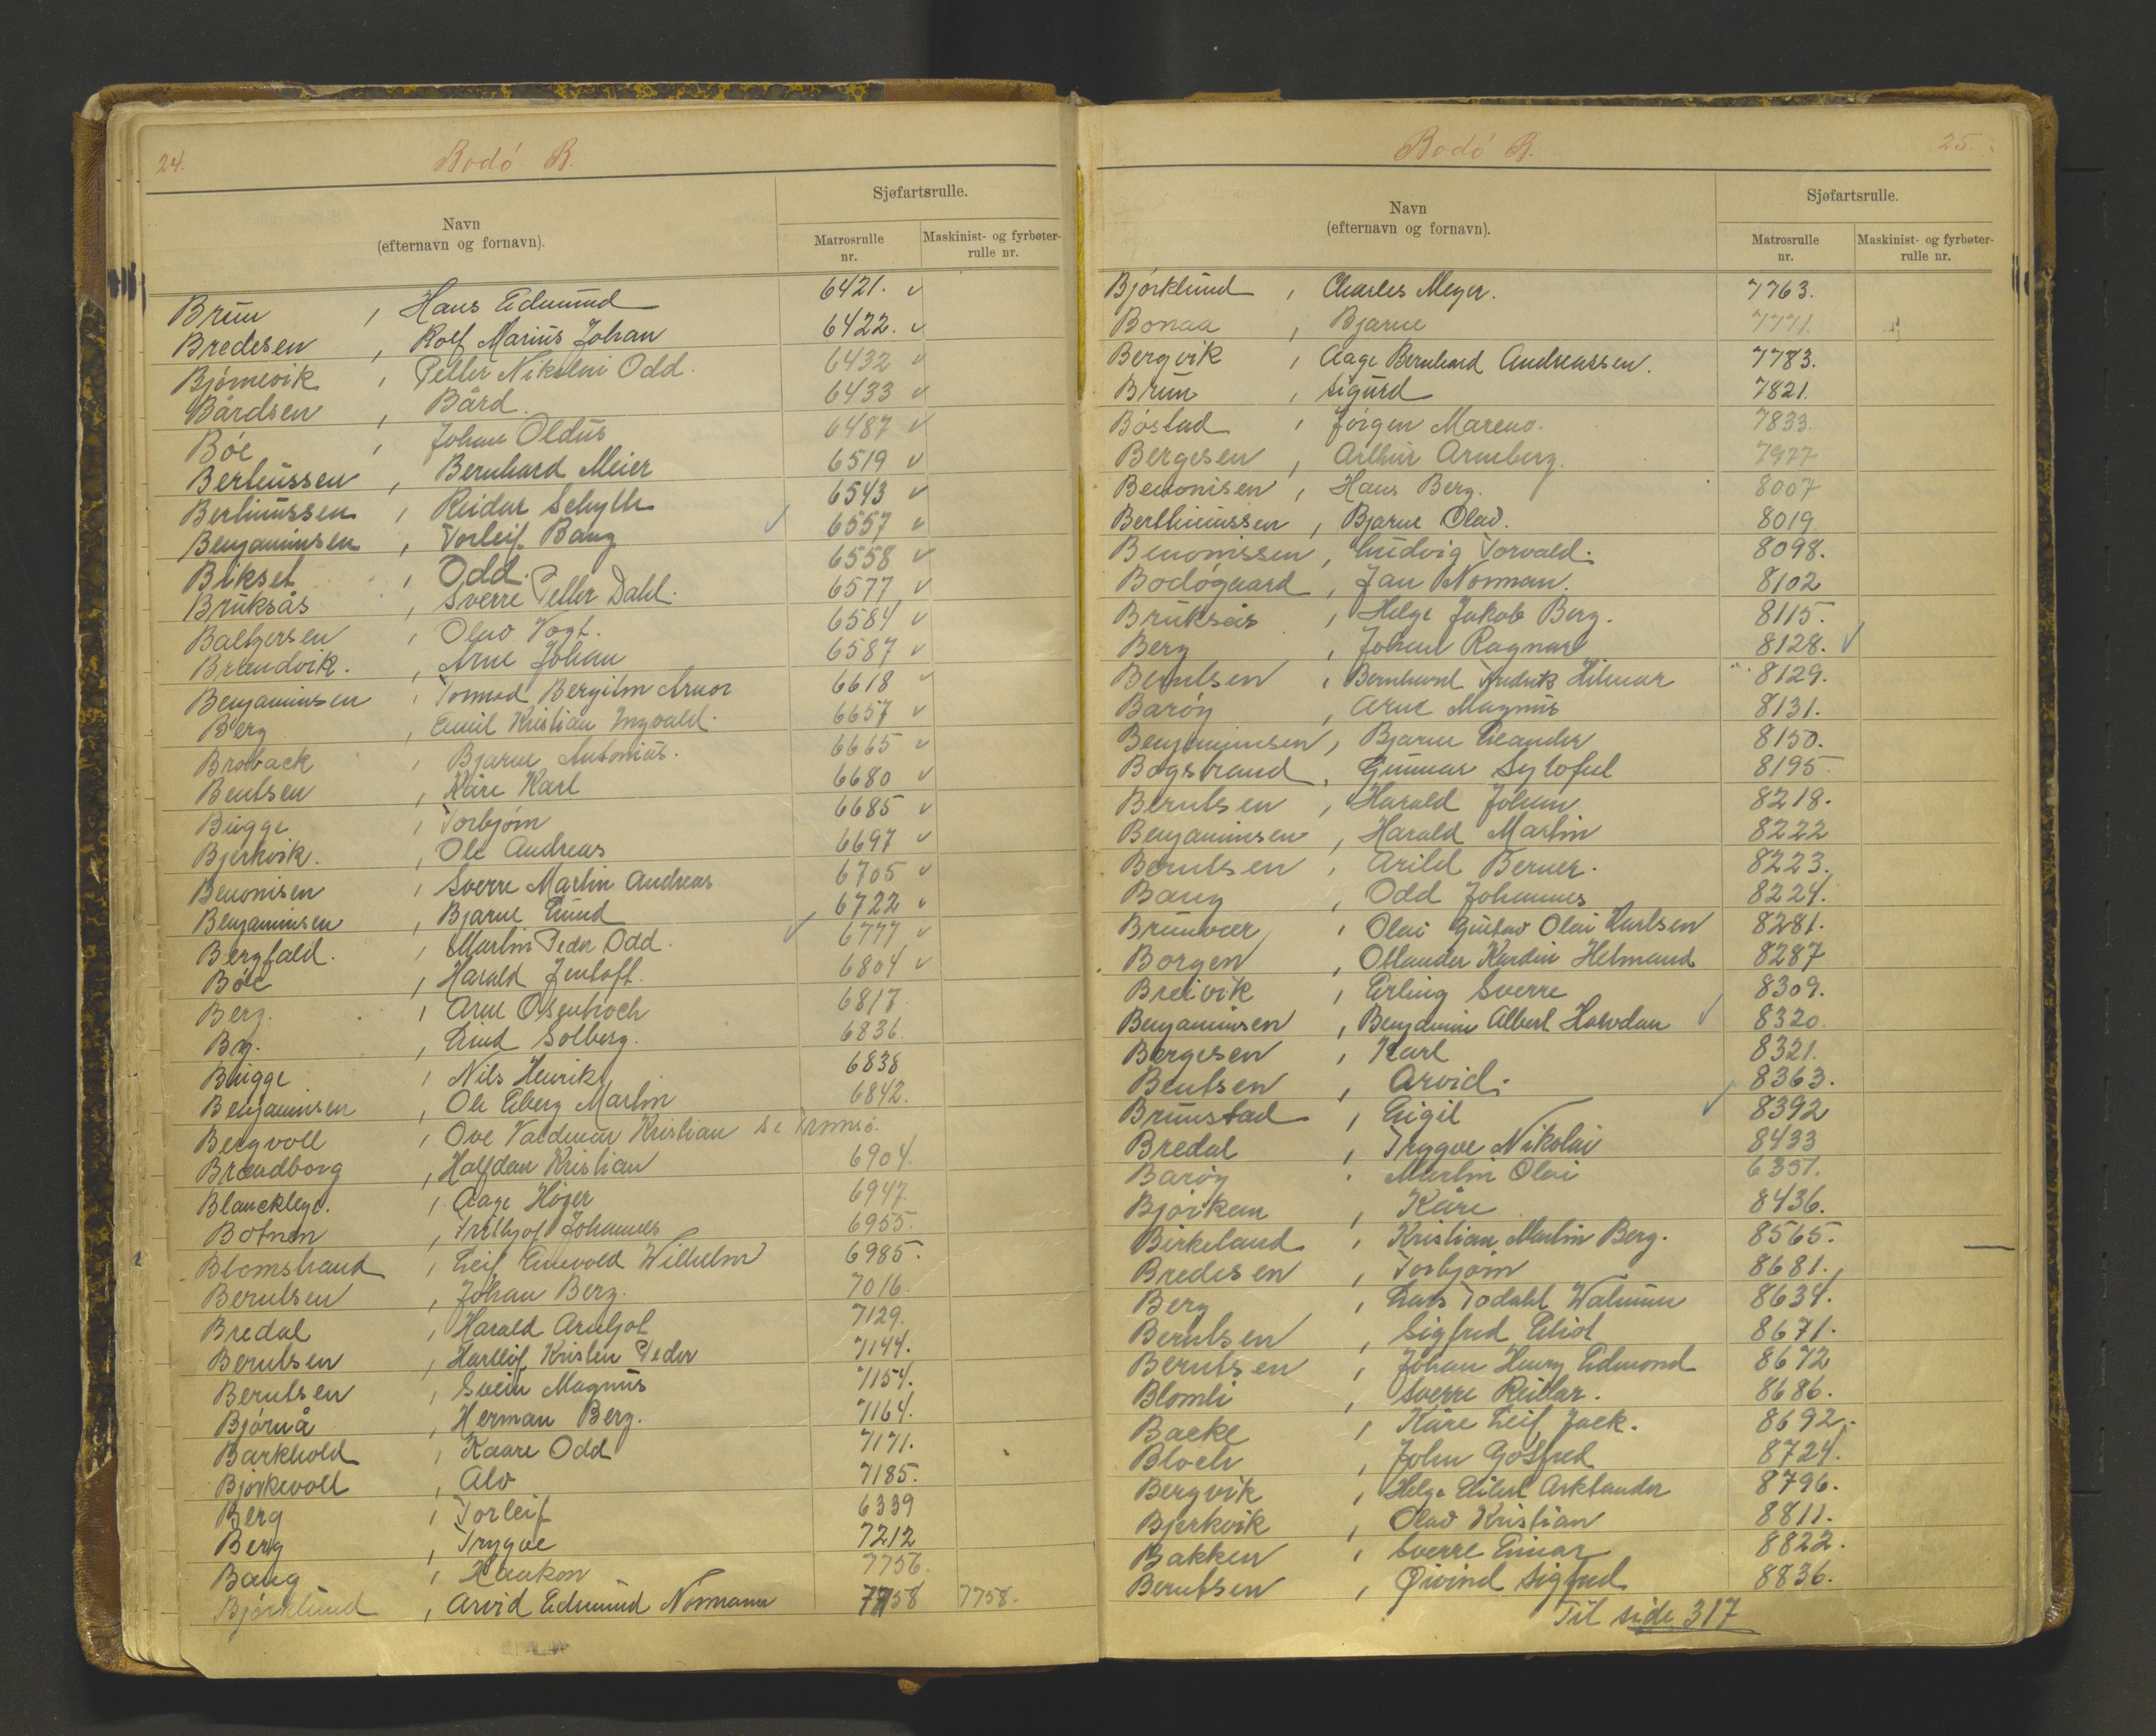 24.
Bodó B.
Navn
(efternavn og fornavn).
Sjøfartsrulle.
Matrosrulle nr.
Maskinist- og fyrbøter-rulle nr.
Brun , Hans Edmund 6421. ✓
Bredesen , Rolf Marius Johan 6422. ✓
Bjørnevik , Petter Nikolai Odd. 6432 ✓
Bårdsen , Bård. 6433 ✓
Bóe , Johan Oldus 6487 ✓
Berteussen , Bernhard Meier 6519 ✓
Bertinussen , Reidar Schytte 6543 ✓
Benjaminsen , Torleif Bang ✓ 6557 ✓
Bikset , Odd. 6558 ✓
Bruksås , Sverre Petter Dahl. 6577 ✓
Baltzersen , Olav Vogt. 6584 ✓
Brandvik. , Arne Johan 6587 ✓
Benjaminsen , Tormod Bergiton Arnor 6618 ✓
Berg , Emil Kristian Ingvald. 6657 ✓
Broback , Bjarne Antonius. 6665 ✓
Bentsen , Kåre Karl 6680 ✓
Bugge , Torbjørn 6685 ✓
Bjerkvik. , Ole Andreas 6697 ✓
Benonisen , Sverre Martin Andreas 6705 ✓
Benjaminsen , Bjarne Lund 6722 ✓
Bergfald. , Martin Peder Odd. ✓ 6777 ✓
Bóe , Harald Jentoft. 6804 ✓
Berg. , Arne 6817
By. , Lind Solberg. 6836.
Bugge , Nils Henrik 6838
Benjaminsen , Ole Eberg Martin 6842.
Bergvoll , Ove Valdemar Kristian se Tromsø.
Brandborg , Halfdan Kristian 6904.
, Aage Høyer 6947.
Botnen , Fritjof Johannes 6955.
Blomstrand , Leif Enevold Wilhelm 6985.
Berntsen , Johan Berg. 7016
Bredal , Harald Arnljot 7129.
Berntsen , Hartleif Kristen Peder 7144.
Berntsen , Svein Magnus 7154.
Bjørnå , Herman Berg. 7164.
Barkhold , Kaare Odd 7171.
Bjørkevoll , Alv 7185.
Berg , Torleif 6339
Berg , Trygve 7212
Bang , Haakon 7756.
Bjørklund , Arvid Edmund Normann 7758 7758.
Bodó B.
25.
Navn
(efternavn og fornavn).
Sjøfartsrulle.
Matrosrulle nr.
Maskinist- og fyrbøter-rulle nr.
Bjórklund , Charles Meyer. 7763.
Bonaa , Bjarne 7771.
Bergvik , Aage Bernhard Andreassen. 7783.
Brun , Sigurd 7821.
Bóstad , Jørgen Mareno. 7833.
Bergesen , Arthur Arneberg. 7977
Benonisen , Hans Berg. 8007
Berthinussen , Bjarne Olav. 8019.
Benonissen , Ludvig Torvald. 8098.
Bodógaard , Jan Norman. 8102
Bruksås , Helge Jakob Berg. 8115.
Berg , Johan Ragnar 8128. ✓
Berntsen , Bernhard Fredrik Hilmar 8129.
Barøy , Arne Magnus 8131.
Benjaminsen , Bjarne Leander 8150.
Bogstrand , Gunnar 8195.
Berntsen , Harald Johan 8218.
Benjaminsen , Harald Martin 8222
Berntsen , Arild Berner. 8223.
Bang , Odd Johannes 8224.
Brunvær , Olai Gustav Olai Karlsen 8281.
Borgen , Otlander Kardin Helmand 8287
Breivik , Erling Sverre 8309.
Benjaminsen , Benjamin Albert Halvdan ✓ 8320.
Børgesen , Karl 8321.
Bentsen , Arvid. 8363.
Brunstad , Eigil ✓ 8392
Bredal , Trygve Nikolai 8433
Barøy , Martin Olai 6351.
Bjørkan , Kåre 8436.
Birkeland , Kristian Martin Berg. 8565.
Bredesen , Torbjørn 8681.
Berg , Lars Todahl 8634.
Berntsen , Sigfred Eliot 8671.
Berntsen , Johan Henry Edmond 8672
Blomli , Sverre Reidar. 8686.
Backe , Kåre Leif Jack. 8692.
Bloch , John Gotfred 8724.
Bergvik , Helge Eilert Asklander 8796.
Bjerkvik , Olav Kristian 8811.
Bakken , Sverre Einar 8822.
Berntsen , Øivind Sigfred 8836.
Til side 317